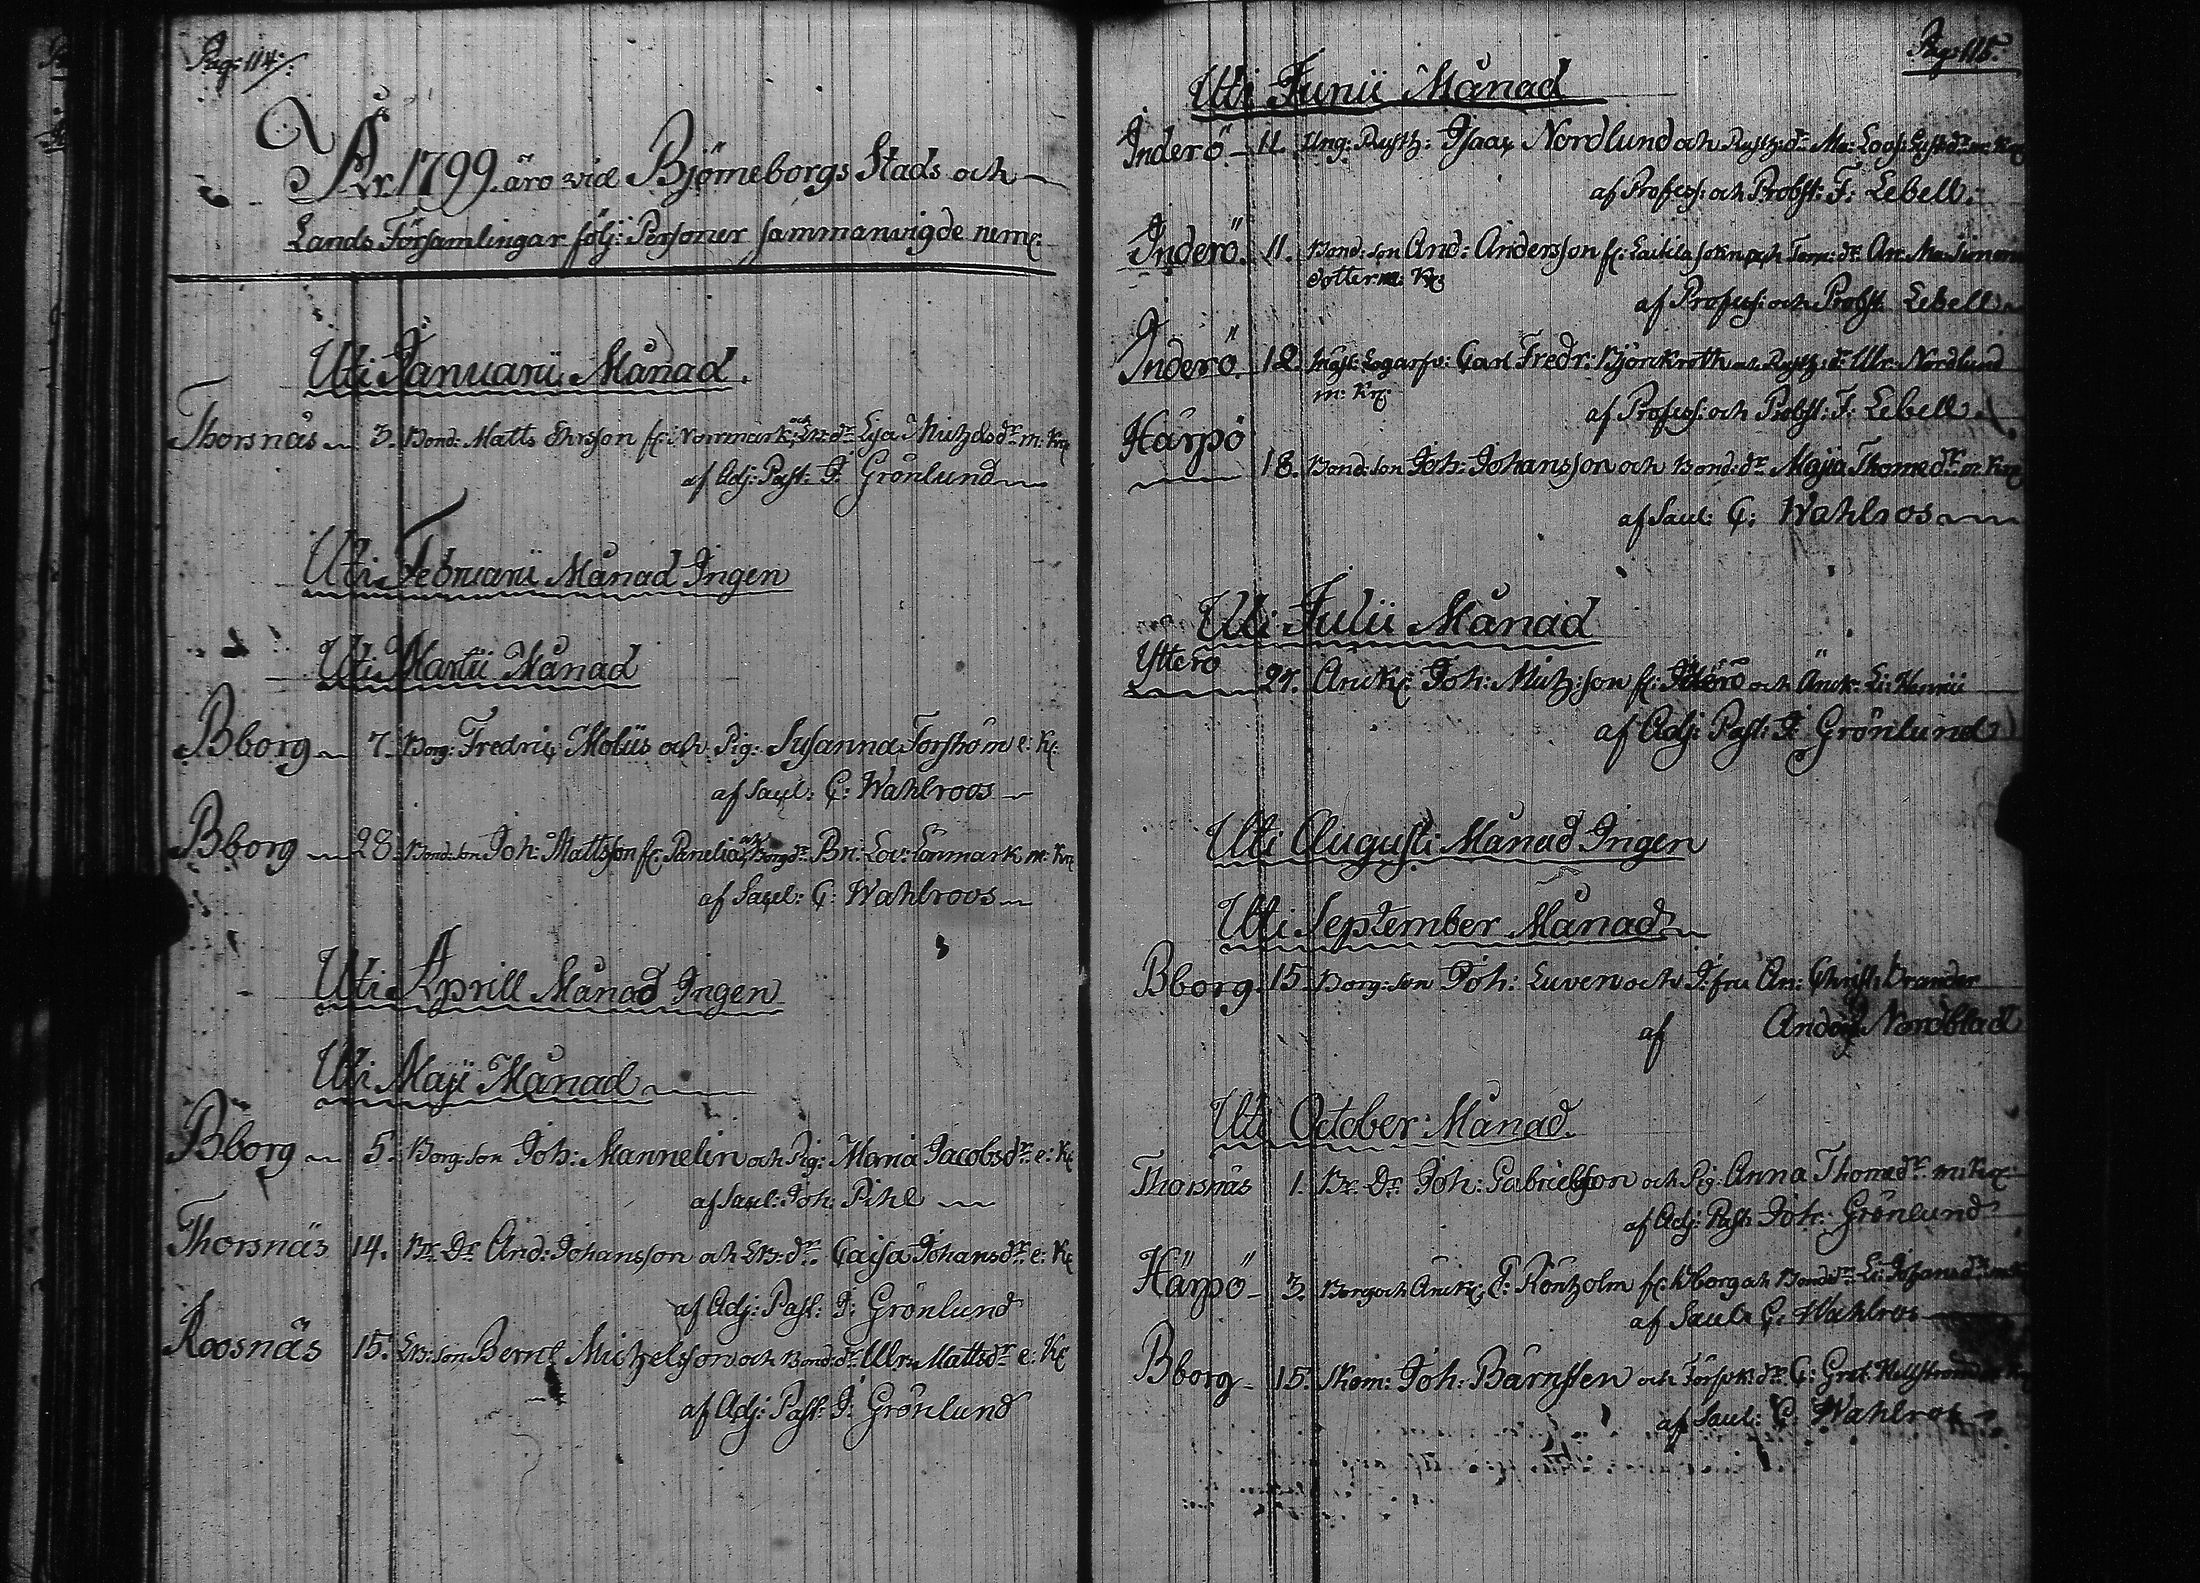 Pag: 114:
År 1799 äro vid Björneborgs Stads och
Lands Församlingar följ: Personer sammanvigde neml:
Uti Januarii Månad.
Thorsnäs 3. Bond: Matts Ersson fr: Norrmark, och dr Lisa Michelsdr m: Kr
af Adj: Past: J: Grönlund
Uti Februarii Månad Ingen
Uti Martii Månad
Bborg 7. Borg: Fredric Moliis och Pig: Susanna Forsström e: K:
af Sacel: C: Wahlroos
Bborg 28. Bond: son Joh: Mattsson fr: Panelia och Borg: dr Br: Lov: Lönmark m: Kr
af Sacel: C: Wahlroos
Uti Aprill Månad Ingen
Uti Maji Månad
Bborg 5. Borg: son Joh: Mannelin och Pig: Maria Jacobsdr e: K
af Sacel: Joh: Pihl
Thorsnäs 14. Br: Dr And: Johansson och dr Caisa Johansdr e: K
af Adj: Past: J: Grönlund
Roosnäs 15. son Bernt Michelsson och Bond: dr Ulr: Mattsdr e: K
af Adj: Past: J: Grönlund
Pag: 115.
Uti Junii Månad
Inderö 11. Ung: Rusth: Isaac Nordlund och Rusth: dr Ma: Lovis:
af Profess: och Probst: F: Lebell.
Inderö 11. Bond: son And: Andersson fr: Laitila sokn och Torp: dr An: Ma: Simons
dotter m: Kr:
af Profess: och Probst: Lebell
Inderö 12. Carl Fredr: Björckroth och Rusth: dr Ulr: Nordlund
m: Kr:
af Profess: och Probst: F: Lebell
Härpö
18. Bond: son Joh: Johansson och Bond: dr Maja Thomædr m: Kr
af Sacel: C: Wahlroos
Uti Julii Månad
Ytterö 27. Änck: Joh: Mich: son fr: och Änck: Li: Henrii
af Adj: Past: J: Grönlund
Uti Augusti Månad Ingen
Uti September Månad
Bborg. 15. Borg: son Joh: Luven och J: fru An: Christ: Brander
af Nordblad
Uti October Månad.
Thorsnäs 1. Br: Dr: Joh: Gabrielsson och Pig: Anna Thomædr m: Kr:
af Adj: Past: Joh: Grönlund
Härpö 3. Borg: och Änck: J: Röntzolm fr: Bborg och Bond: dr Li: Johansdr
af Sacel: C: Wahlros
Bborg 15. Skom: Joh: Bärnsten och dr C: Gret: Hellström
af Sacel: C: Wahlros